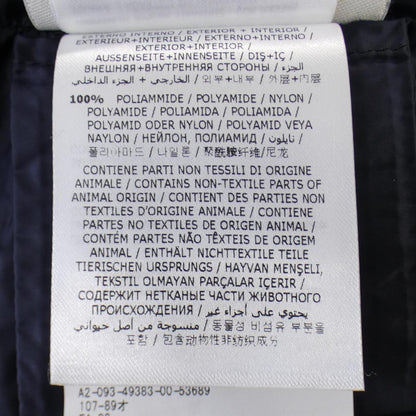 ESTERNO INTERNO / EXTERIOR + INTERIOR /
EXTÉRIEUR+INTÉRIEUR / EXTERNO+INTERNO /
EXTERIOR+INTERIOR /
AUSSENSEITE+INNENSEITE / DIŞ+İÇ /
ВНЕШНЯЯ+ВНУТРЕННЯЯ СТОРОНЫ / الجزء
الخارجي + الجزء الداخلي / 외부+내부 / 外层+内层
100% POLIAMMIDE / POLYAMIDE / NYLON /
POLYAMIDE / POLIAMIDA / POLIAMIDA /
POLYAMID ODER NYLON / POLYAMID VEYA
NAYLON / НЕЙЛОН, ПОЛИАМИД / نايلون /
폴리아마드 / 나일론 / 聚酰胺纤维/尼龙
CONTIENE PARTI NON TESSILI DI ORIGINE
ANIMALE / CONTAINS NON-TEXTILE PARTS OF
ANIMAL ORIGIN / CONTIENT DES PARTIES NON
TEXTILES D'ORIGINE ANIMALE / CONTIENE
PARTES NO TEXTILES DE ORIGEN ANIMAL /
CONTÉM PARTES NÃO TÊXTEIS DE ORIGEM
ANIMAL / ENTHÄLT NICHTTEXTILE TEILE
TIERISCHEN URSPRUNGS / HAYVAN MENŞELİ,
TEKSTIL OLMAYAN PARÇALAR İÇERİR /
СОДЕРЖИТ НЕТКАНЫЕ ЧАСТИ ЖИВОТНОГО
ПРОИСХОЖДЕНИЯ / يحتوي على أجزاء غير
منسوجة من أصل حيواني / 동물성 비섬유 부분을
포함 / 包含动物性非纺织成分
A2-093-49383-00-53689
107-89才